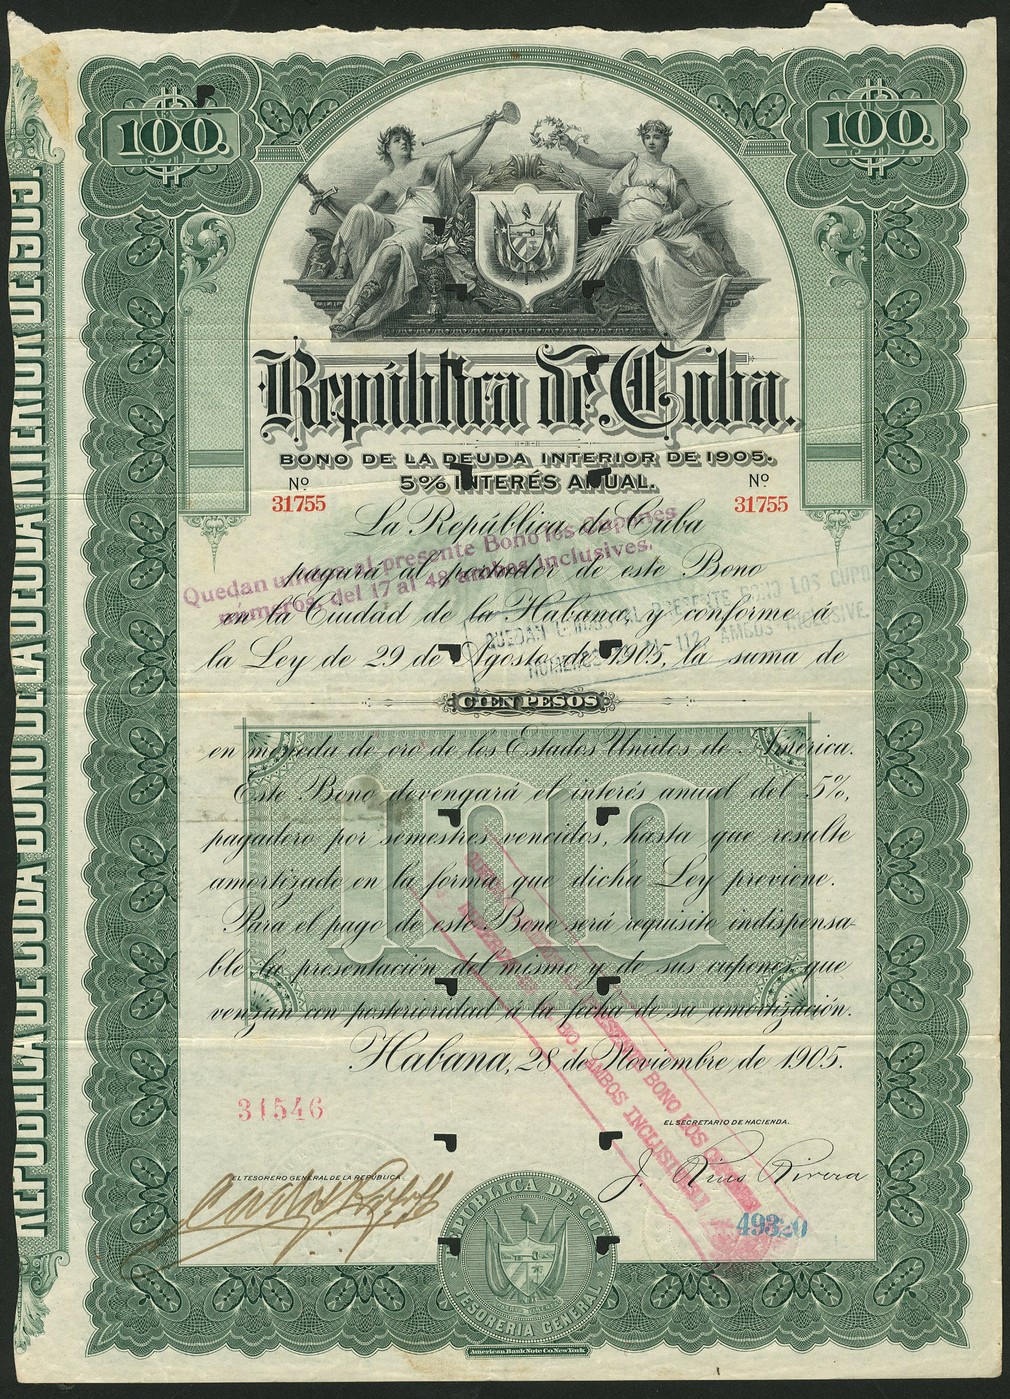 100.
100.
República de Cuba.
BONO DE LA DEUDA INTERIOR DE 1905.
5% INTERÉS ANUAL.
Nº
31755
Nº
31755
La República de Cuba
pagará al portador de este Bono
en la Ciudad de la Habana, y conforme á
la Ley de 29 de Agosto de 1905, la suma de
CIEN PESOS
en moneda de oro de los Estados Unidos de América.
Este Bono devengará el interés anual del 5%,
pagadero por semestres vencidos, hasta que resulte
amortizado en la forma que dicha Ley previene.
Para el pago de este Bono será requisito indispensa-
ble la presentación del mismo y de sus cupones que
venzan con posterioridad á la fecha de su amortización.
Habana, 28 de Noviembre de 1905.
100
Quedan unidos al presente Bono los Cupones
numeros, del 17 al 48 ambos inclusives.
QUEDAN UNIDOS AL PRESENTE BONO LOS CUPO
NUMEROS AL 112 AMBOS INCLUSIVE.
PRESENTE BONO LOS
AMBOS INCLUSIVE
31546
EL SECRETARIO DE HACIENDA.
J. Rius Rivera
EL TESORERO GENERAL DE LA REPÚBLICA
49820
REPUBLICA DE CUBA
TESORERIA GENERAL
American Bank Note Co. New York
REPUBLICA DE CUBA BONO DE LA DEUDA INTERIOR DE 1905.